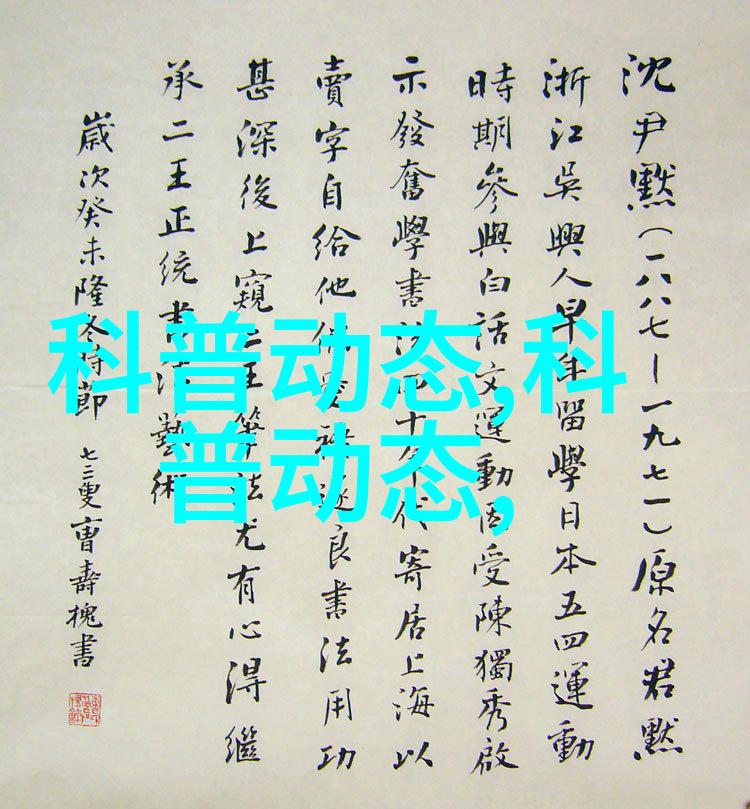 沈尹默(一八八七—一九七一)原名君默
浙江吳興人早年留學日本五四運動
時期參與白話文運動因受陳獨秀啟
示發奮學書法四十年代寄居上海以
賣字自給他偏愛褚遂良書法用功
甚深後上窺二王筆法尤有心得繼
承二王正统書法藝術
歲次癸未隆冬時節
七三叟曹壽槐書
科普动态,科
普动态,